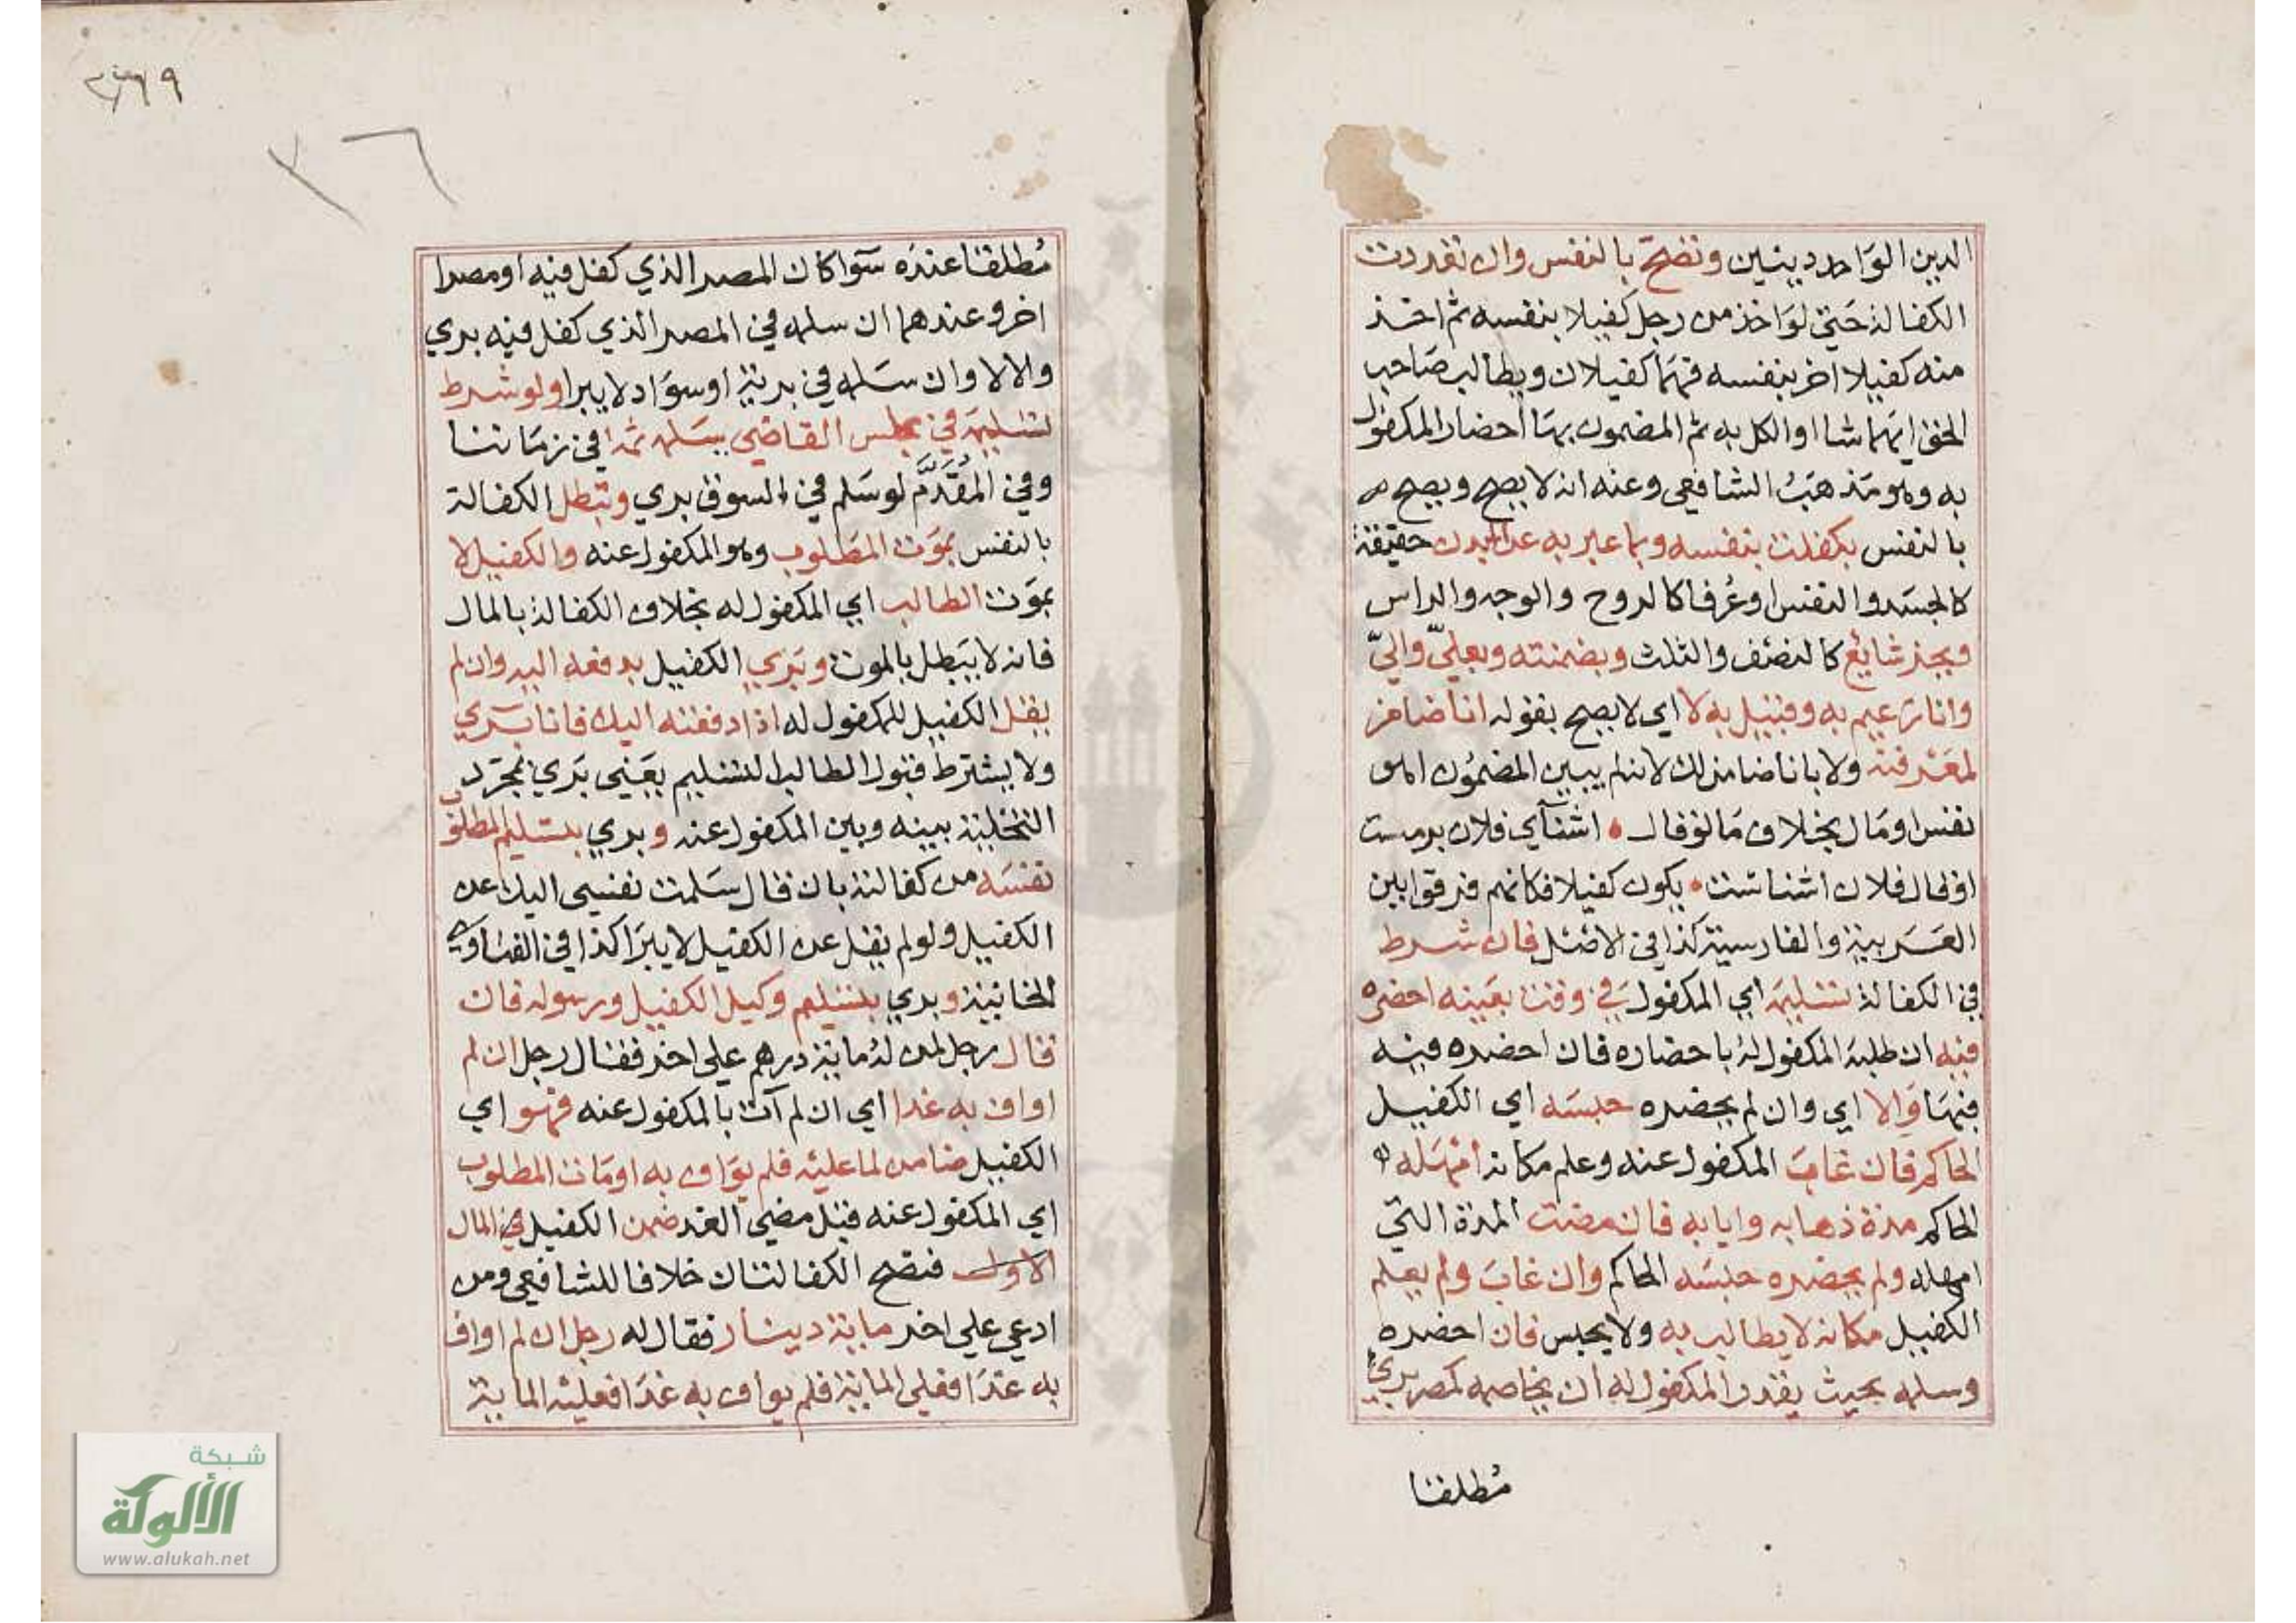 الدين الواحد دينين وتصح بالنفس وان تعددت
الكفالة حتي لو اخذ من رجل كفيلا بنفسه ثم اخذ
منه كفيلا اخر بنفسه فهما كفيلان ويطالب صاحب
الحق ايهما شاا والكل به ثم المضمون بها احضار المكفول
به وهو مذهب الشافعي وعنه انه لا يصح ويصح
بالنفس بكفلت بنفسه وبما عبر به عن البدن حقيقة
كالجسد والنفس او عُرفا كالروح والوجه والراس
وبجز شايع كالنصف والثلث وبضمنته وبعليّ واليّ
وانا زعيم به وقبيل به لا اي لا يصح بقوله انا ضامن
لمعرفته ولا بانا ضامن لك لانه لم يبين المضمون اهو
نفس او مال بخلاف ما لو قال اشنآي فلان برمست
او قال فلان اشناست يكون كفيلا فكانهم فرقوا بين
العربية والفارسية كذا في الاصل فان شرط
في الكفالة تسليمه اي المكفول في وقت بعينه احضره
فيه ان طلبه المكفول له باحضاره فان احضره فيه
فبها والا اي وان لم يحضره حبسه اي الكفيل
الحاكم فان غاب المكفول عنه وعلم مكانه امهله
الحاكم مدة ذهابه وايابه فان مضت المدة التي
امهله ولم يحضره حبسه الحاكم وان غاب ولم يعلم
الكفيل مكانه لا يطالب به ولا يحبس فان احضره
وسلمه بحيث يقدر المكفول له ان يخاصمه كمصر بري
مُطلقا
٣٦٩
٣٦
مُطلقا عنده سوا كان المصر الذي كفل فيه او مصرا
اخر وعندهما ان سلمه في المصر الذي كفل فيه بري
والا لا وان سلمه في برية او سواد لا يبرا ولو شرط
تسليمه في مجلس القاضي يسلمه ثمه في زماننا
وفي المُقدَّم لو سلم في السوق بري وتبطل الكفالة
بالنفس بموت المطلوب وهو المكفول عنه والكفيل لا
بموت الطالب اي المكفول له بخلاف الكفالة بالمال
فانه لا يبطل بالموت وبري الكفيل بدفعه اليه وان لم
يقل الكفيل للمكفول له اذا دفعته اليك فانا بري
ولا يشترط قبول الطالب التسليم يعني بري بمجرد
التخلية بينه وبين المكفول عنه وبري بتسليم المطلوب
نفسه من كفالته بان قال سلمت نفسي اليك عن
الكفيل ولو لم يقل عن الكفيل لا يبرا كذا في الفتاوي
الخانية وبري بتسليم وكيل الكفيل ورسوله فان
قال رجل لمن له ماية درهم علي اخر فقال رجل ان لم
اواف به غدا اي ان لم آت بالمكفول عنه فهو اي
الكفيل ضامن لما عليه فلم يواف به او مات المطلوب
اي المكفول عنه قبل مضي الغد ضمن الكفيل في المال
الاول فتصح الكفالتان خلافا للشافعي ومن
ادعي علي اخر ماية دينار فقال له رجل ان لم اواف
به غدا فعلي الماية فلم يواف به غدا فعليه الماية
شبكة
الألوكة
www.alukah.net